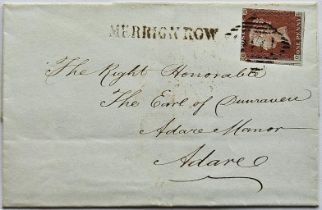 MERRION ROW
The Right Honorable
The Earl of Dunraven
Adare Manor
Adare